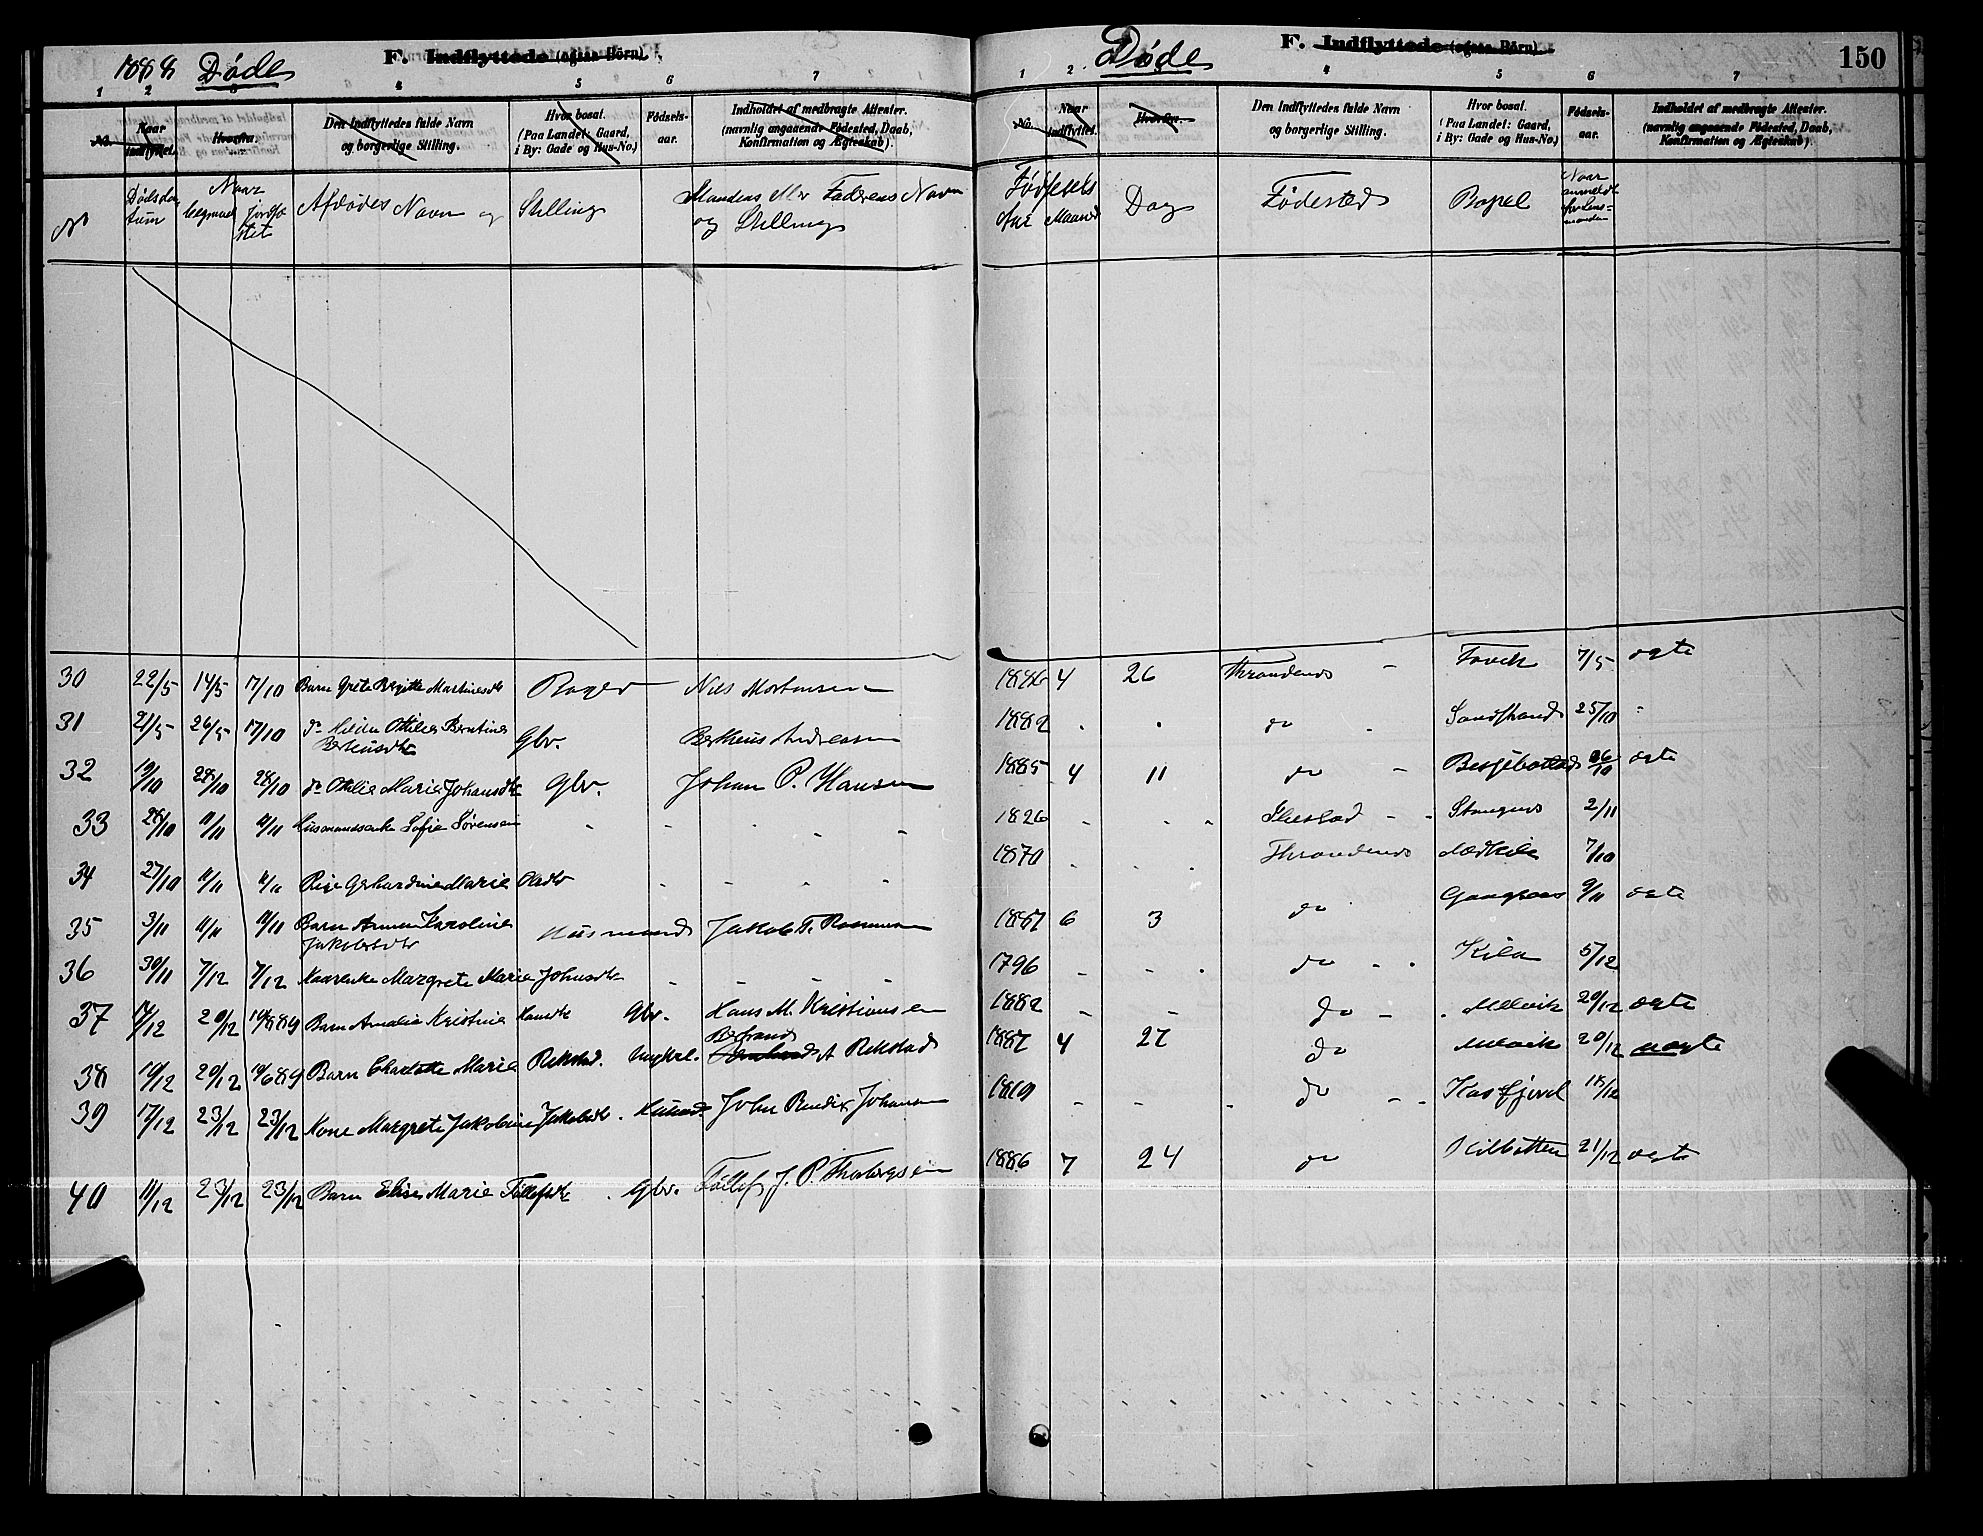 1888 Døde F. Indflyttede (ogsaa Börn).
1 2 3 4 5 6 7
No. Naar indflyttet. Hvorfra. Den Indflyttedes fulde Navn og borgerlige Stilling. Hvor bosat. (Paa Landet: Gaard, i By: Gade og Hus-No.) Födsels-aar. Indholdet af medbragte Attester. (navnlig angaaende Födested, Daab, Konfirmation og Ægteskab).
N Dødsdatum Naar begravet jordfæstet Afdødes Navn og Stilling Mandens eller Faderens Navn og Stilling
30 22/5 14/5 17/10 Barn Grete Birgitte Martinesdtr Nils Mortensen
31 21/5 26/5 17/10 do Hilda Ottilie Berntine Gbr. Bertheus Andreassen
Bertheusdtr
32 19/10 28/10 28/10 do Otilie Marie Johansdtr Gbr. Johan P. Hansen
33 28/10 11/11 11/11 Husmandsenke Sofie Sørensen - - - -
34 27/10 11/11 11/11 Pige Gerhardine Marie Olsdtr - - - -
35 3/11 11/11 11/11 Barn Anne Karoline Husmand Jakob T. Rasmussen
Jakobsdtr
36 30/11 7/12 7/12 Kaarenke Margrete Marie Johnsdtr - - - -
37 14/12 20/12 Barn Amalie Kristine Hansdtr Gbr. Hans M. Kristiansen
Bertrand
38 19/12 20/12 Barn Charlotte Marie Rekstad. Ungkrl. A Rekstad
39 17/12 23/12 23/12 Kone Margrete Jakobine Jakobsdtr. Husmd. John Bendix Johansen
40 11/12 23/12 23/12 Barn Elise Marie Tollefsdtr . Gbr. Tollef J. P. Thorbergsen
Døde F. Indflyttede (ogsaa Börn). 150
1 2 3 4 5 6 7
No. Naar indflyttet. Hvorfra. Den Indflyttedes fulde Navn og borgerlige Stilling. Hvor bosat. (Paa Landet: Gaard, i By: Gade og Hus-No.) Födsels-aar. Indholdet af medbragte Attester. (navnlig angaaende Födested, Daab, Konfirmation og Ægteskab).
Fødsels Aar Maaned Dag Fødested Bopel Naar anmeldt for Lensmanden
1886 4 26 Throndenes - Tovik 7/5 ægte
1882 . . do . Sandstrand 25/10 -
1885 4 11 do - 26/10 ægte
1826 - - - Ibestad - - Stangnes 2/11
1870 - - . Throndenes 7/10
1887 6 3 do . Gangsaas 9/11 ægte
1796 - - . do - . Kila 5/12
1882 - - do - . Melvik 20/12 ægte
1887 4 27 do Melvik 20/12 uægte
1819 - - . do - - Kasfjord 18/12
1886 7 24 do Kilbotten 21/12 ægte